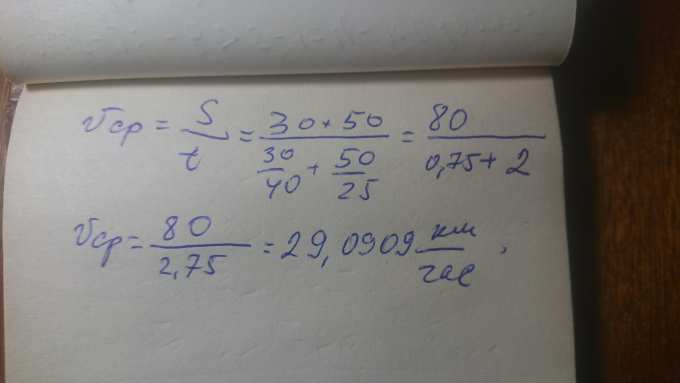 Vср = S/t = (30+50)/(30/40 + 50/25) = 80/(0,75+2)
Vср = 80/2,75 = 29,0909 км/час,